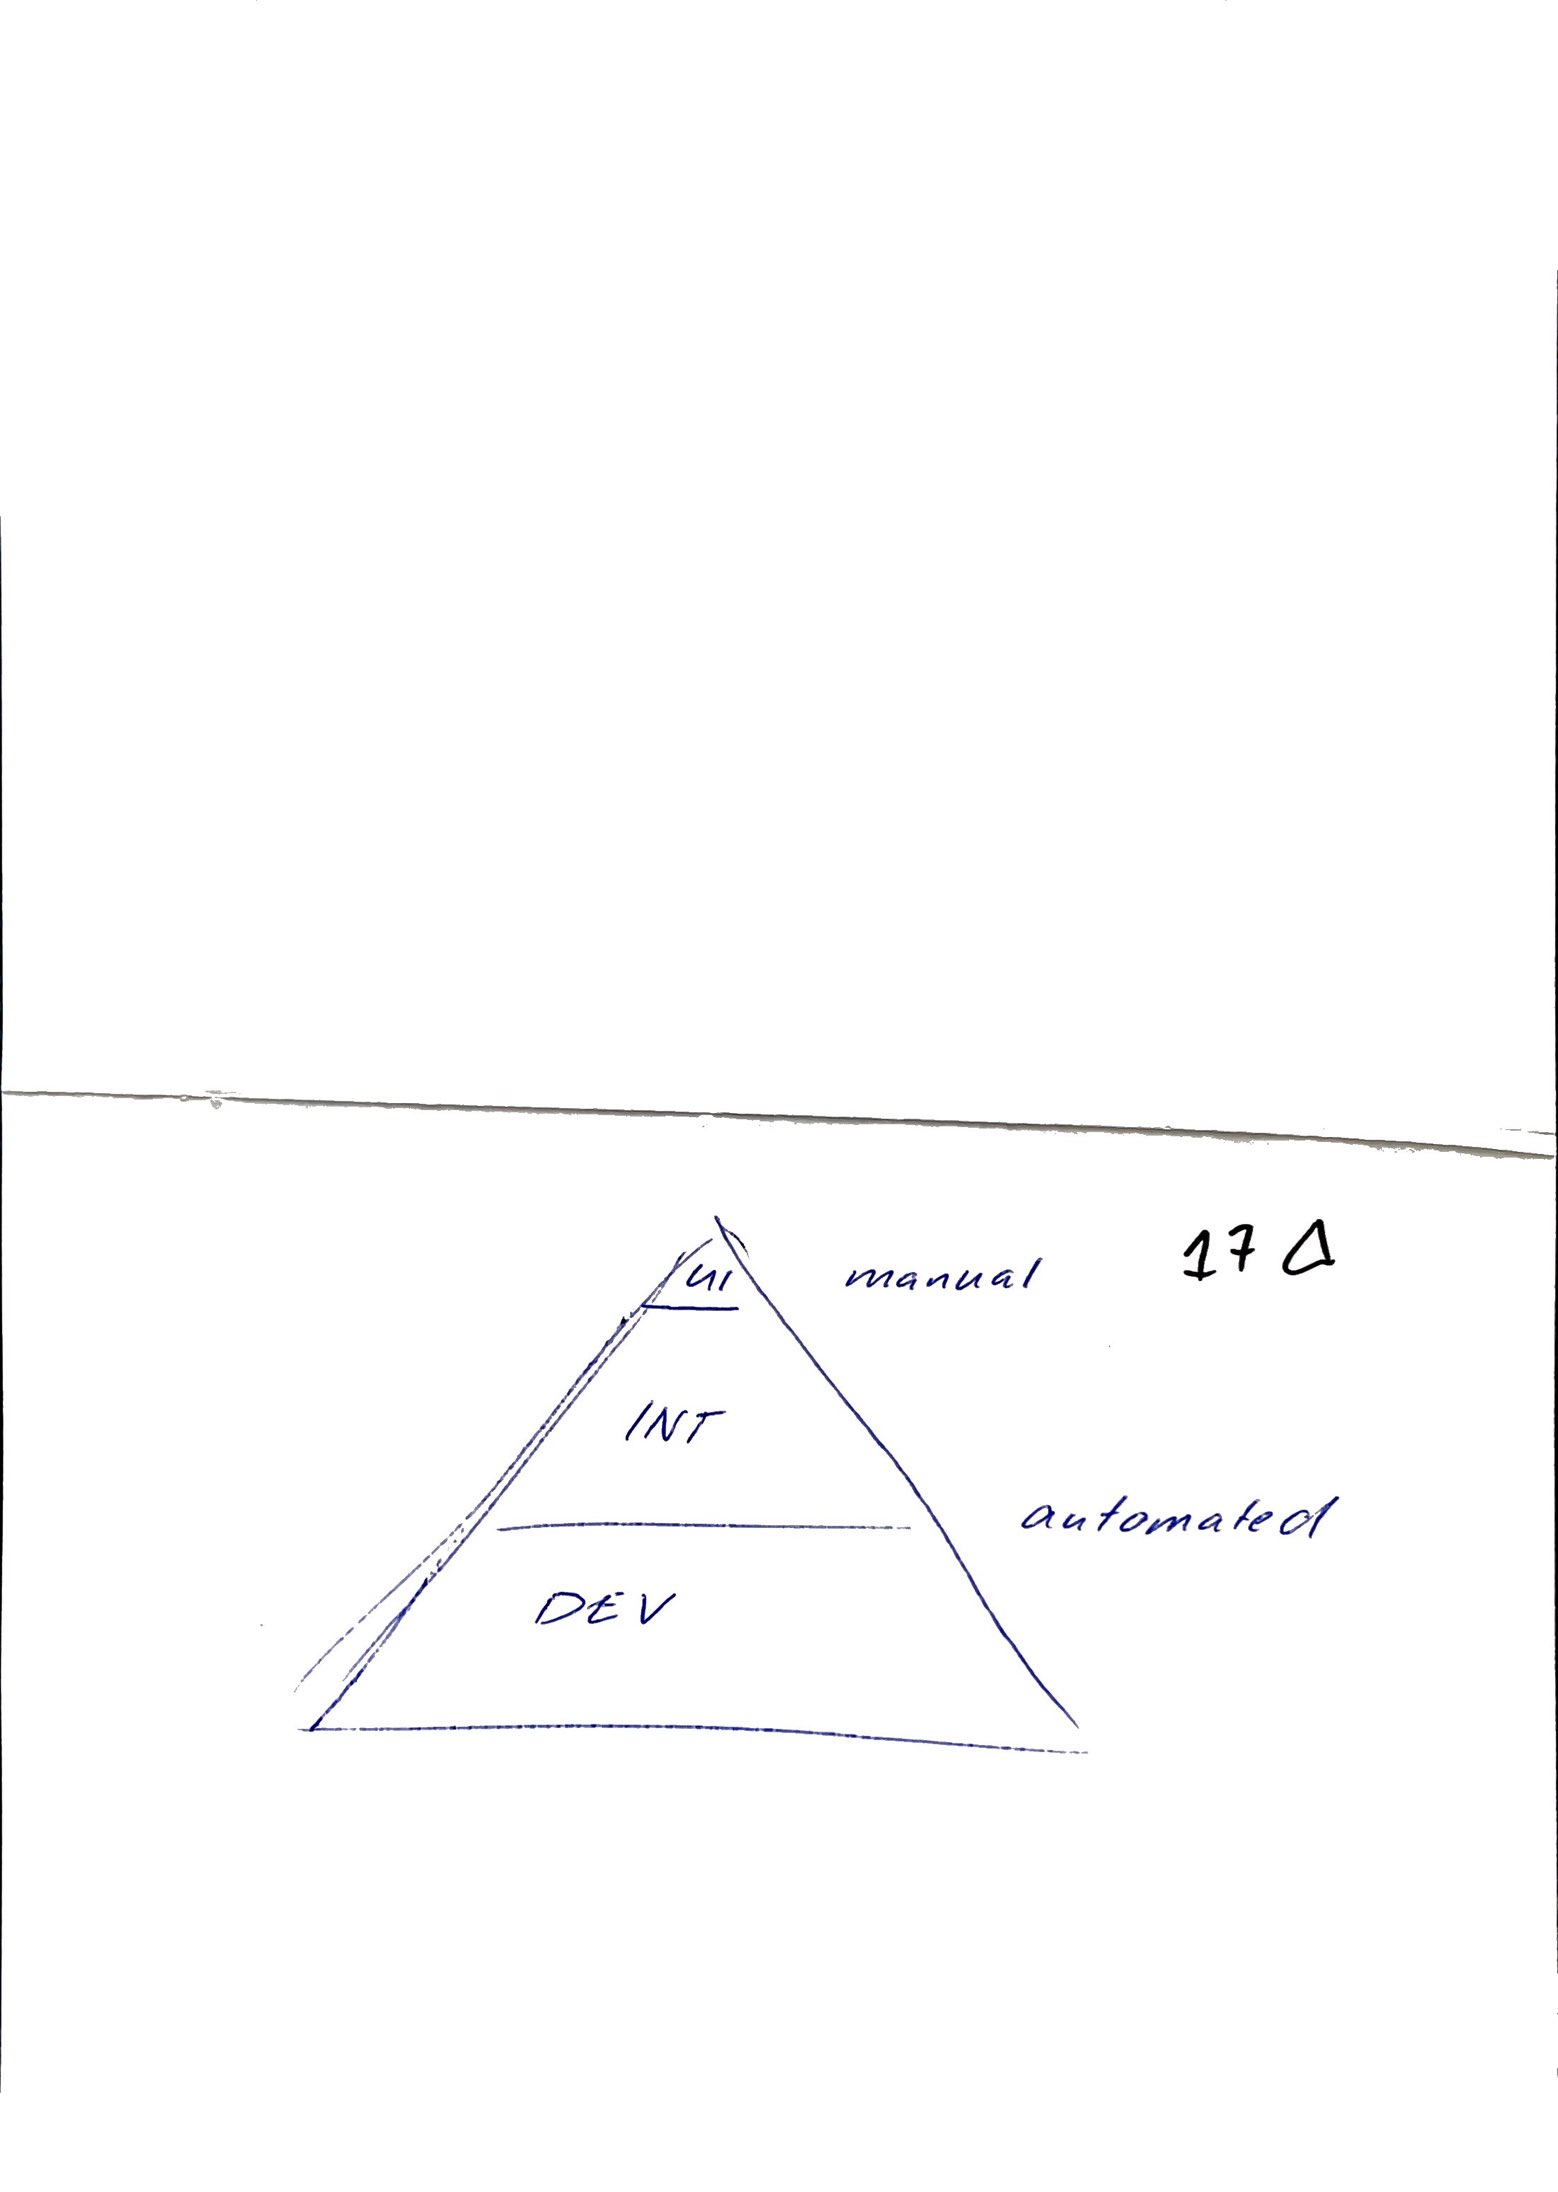 17 Δ
UI
manual
INT
automated
DEV